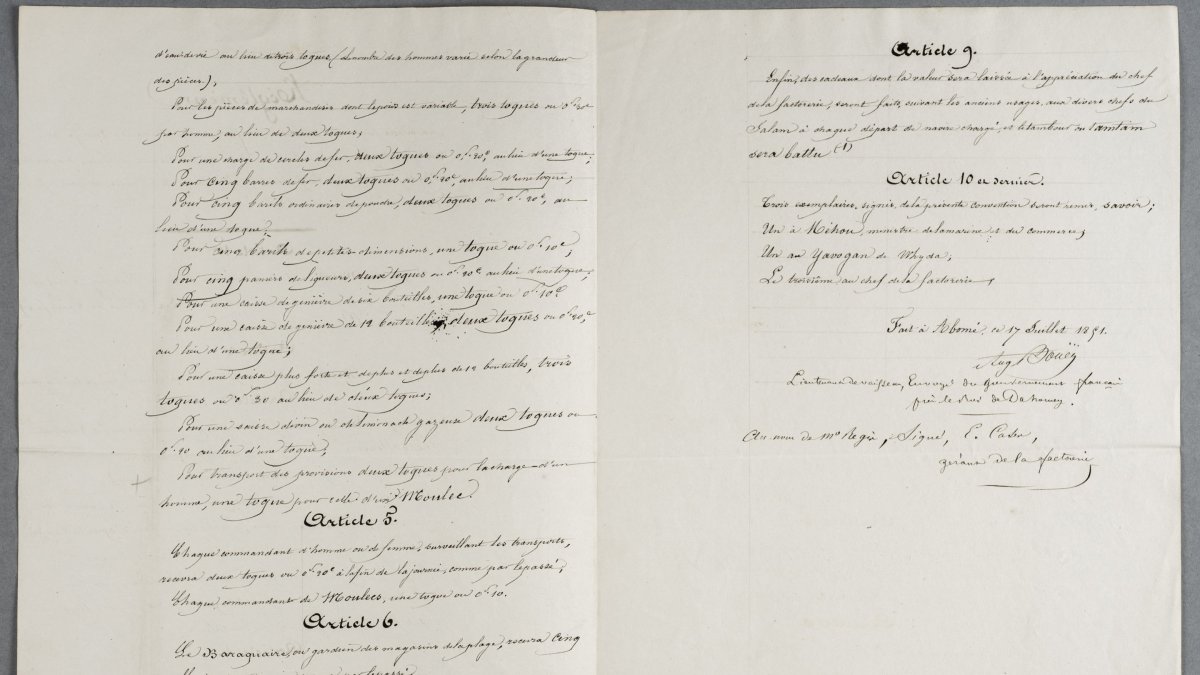 d'eau de vie au lieu de trois toques (le nombre des hommes varie selon la grandeur
des pièces.);
Pour les pièces de marchandises dont le poids est variable, trois toques ou 0f.30c
par homme, au lieu de deux toques;
Pour une charge de cercles de fer, deux toques ou 0f.20c, au lieu d'une toque;
Pour cinq barres de fer, deux toques ou 0f.20c, au lieu d'une toque;
Pour cinq barils ordinaires de poudre, deux toques ou 0f.20c, au
lieu d'une toque;
Pour cinq barils de petites dimensions, une toque ou 0f.10c;
Pour cinq paniers de liqueurs, deux toques ou 0f.20c au lieu d'une toque;
Pour une caisse de genièvre de six bouteilles, une toque ou 0f.10c
Pour une caisse de genièvre de 12 bouteilles, deux toques ou 0f.20c
au lieu d'une toque;
Pour une caisse plus forte et de plus et de plus de 12 bouteilles, trois
toques ou 0f.30 au lieu de deux toques;
Pour une caisse de vin ou de limonade gazeuse deux toques ou
0f.20 au lieu d'une toque;
Pour transport des provisions deux toques pour la charge d'un
homme, une toque pour celle d'un Moulec.
Article 5.
Chaque commandant d'homme ou de femme, surveillant les transports,
recevra deux toques ou 0f.20c à la fin de la journée, comme par le passé;
Chaque commandant de Moulecs, une toque ou 0f.10.
Article 6.
Le Baraquaire, ou gardien des magasins de la plage, recevra cinq
Article 9.
Enfin, des cadeaux dont la valeur sera laissée à l'appréciation du chef
de la factorerie, seront faits, suivant les anciens usages, aux divers chefs du
Salam à chaque départ de navire chargé, et le tambour ou tamtam
sera battu (1)
Article 10 et dernier.
Trois exemplaires, signés, de la présente convention seront remis, savoir;
Un à Méhou, ministre de la marine et du commerce;
Un au Yavogan de Whyda;
Le troisième au chef de la factorerie.
Fait à Abomé, ce 17 Juillet 1851.
Aug Bouëy
Lieutenant de vaisseau, Envoyé du Gouvernement français
près le Roi de Dahomey.
Au nom de Mr Régis, Signé, E. Case,
gérant de la factorerie